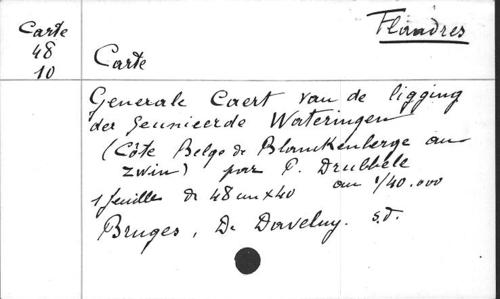 Carte
48
10
Flandres
Carte
Generale Caert van de ligging
der Geunieerde Wateringen
(Côte Belge de Blanckenberge au
Zwin) par P. Drubbele
1 feuille de 48 cm x 40 au 1/40.000
Bruges, De Daveluy. s.d.